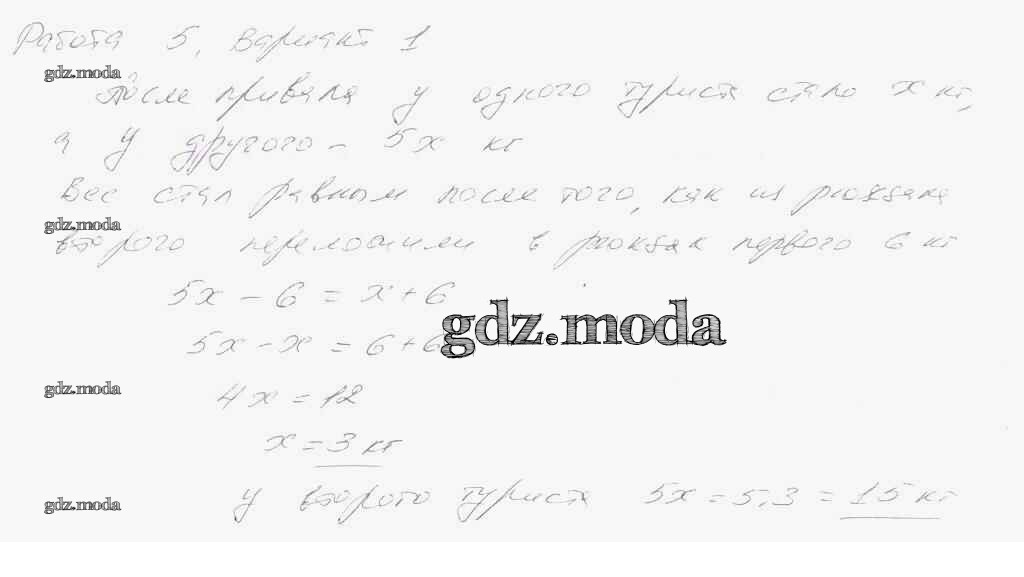 Работа 5, Вариант 1
gdz.moda
После привала у одного туриста стало x кг,
а у другого – 5x кг
Вес стал равным после того, как из рюкзака
gdz.moda
второго переложили в рюкзак первого 6 кг
5x - 6 = x + 6
gdz.moda
5x - x = 6 + 6
gdz.moda
4x = 12
x = 3 кг
gdz.moda
У второго туриста 5x = 5·3 = 15 кг